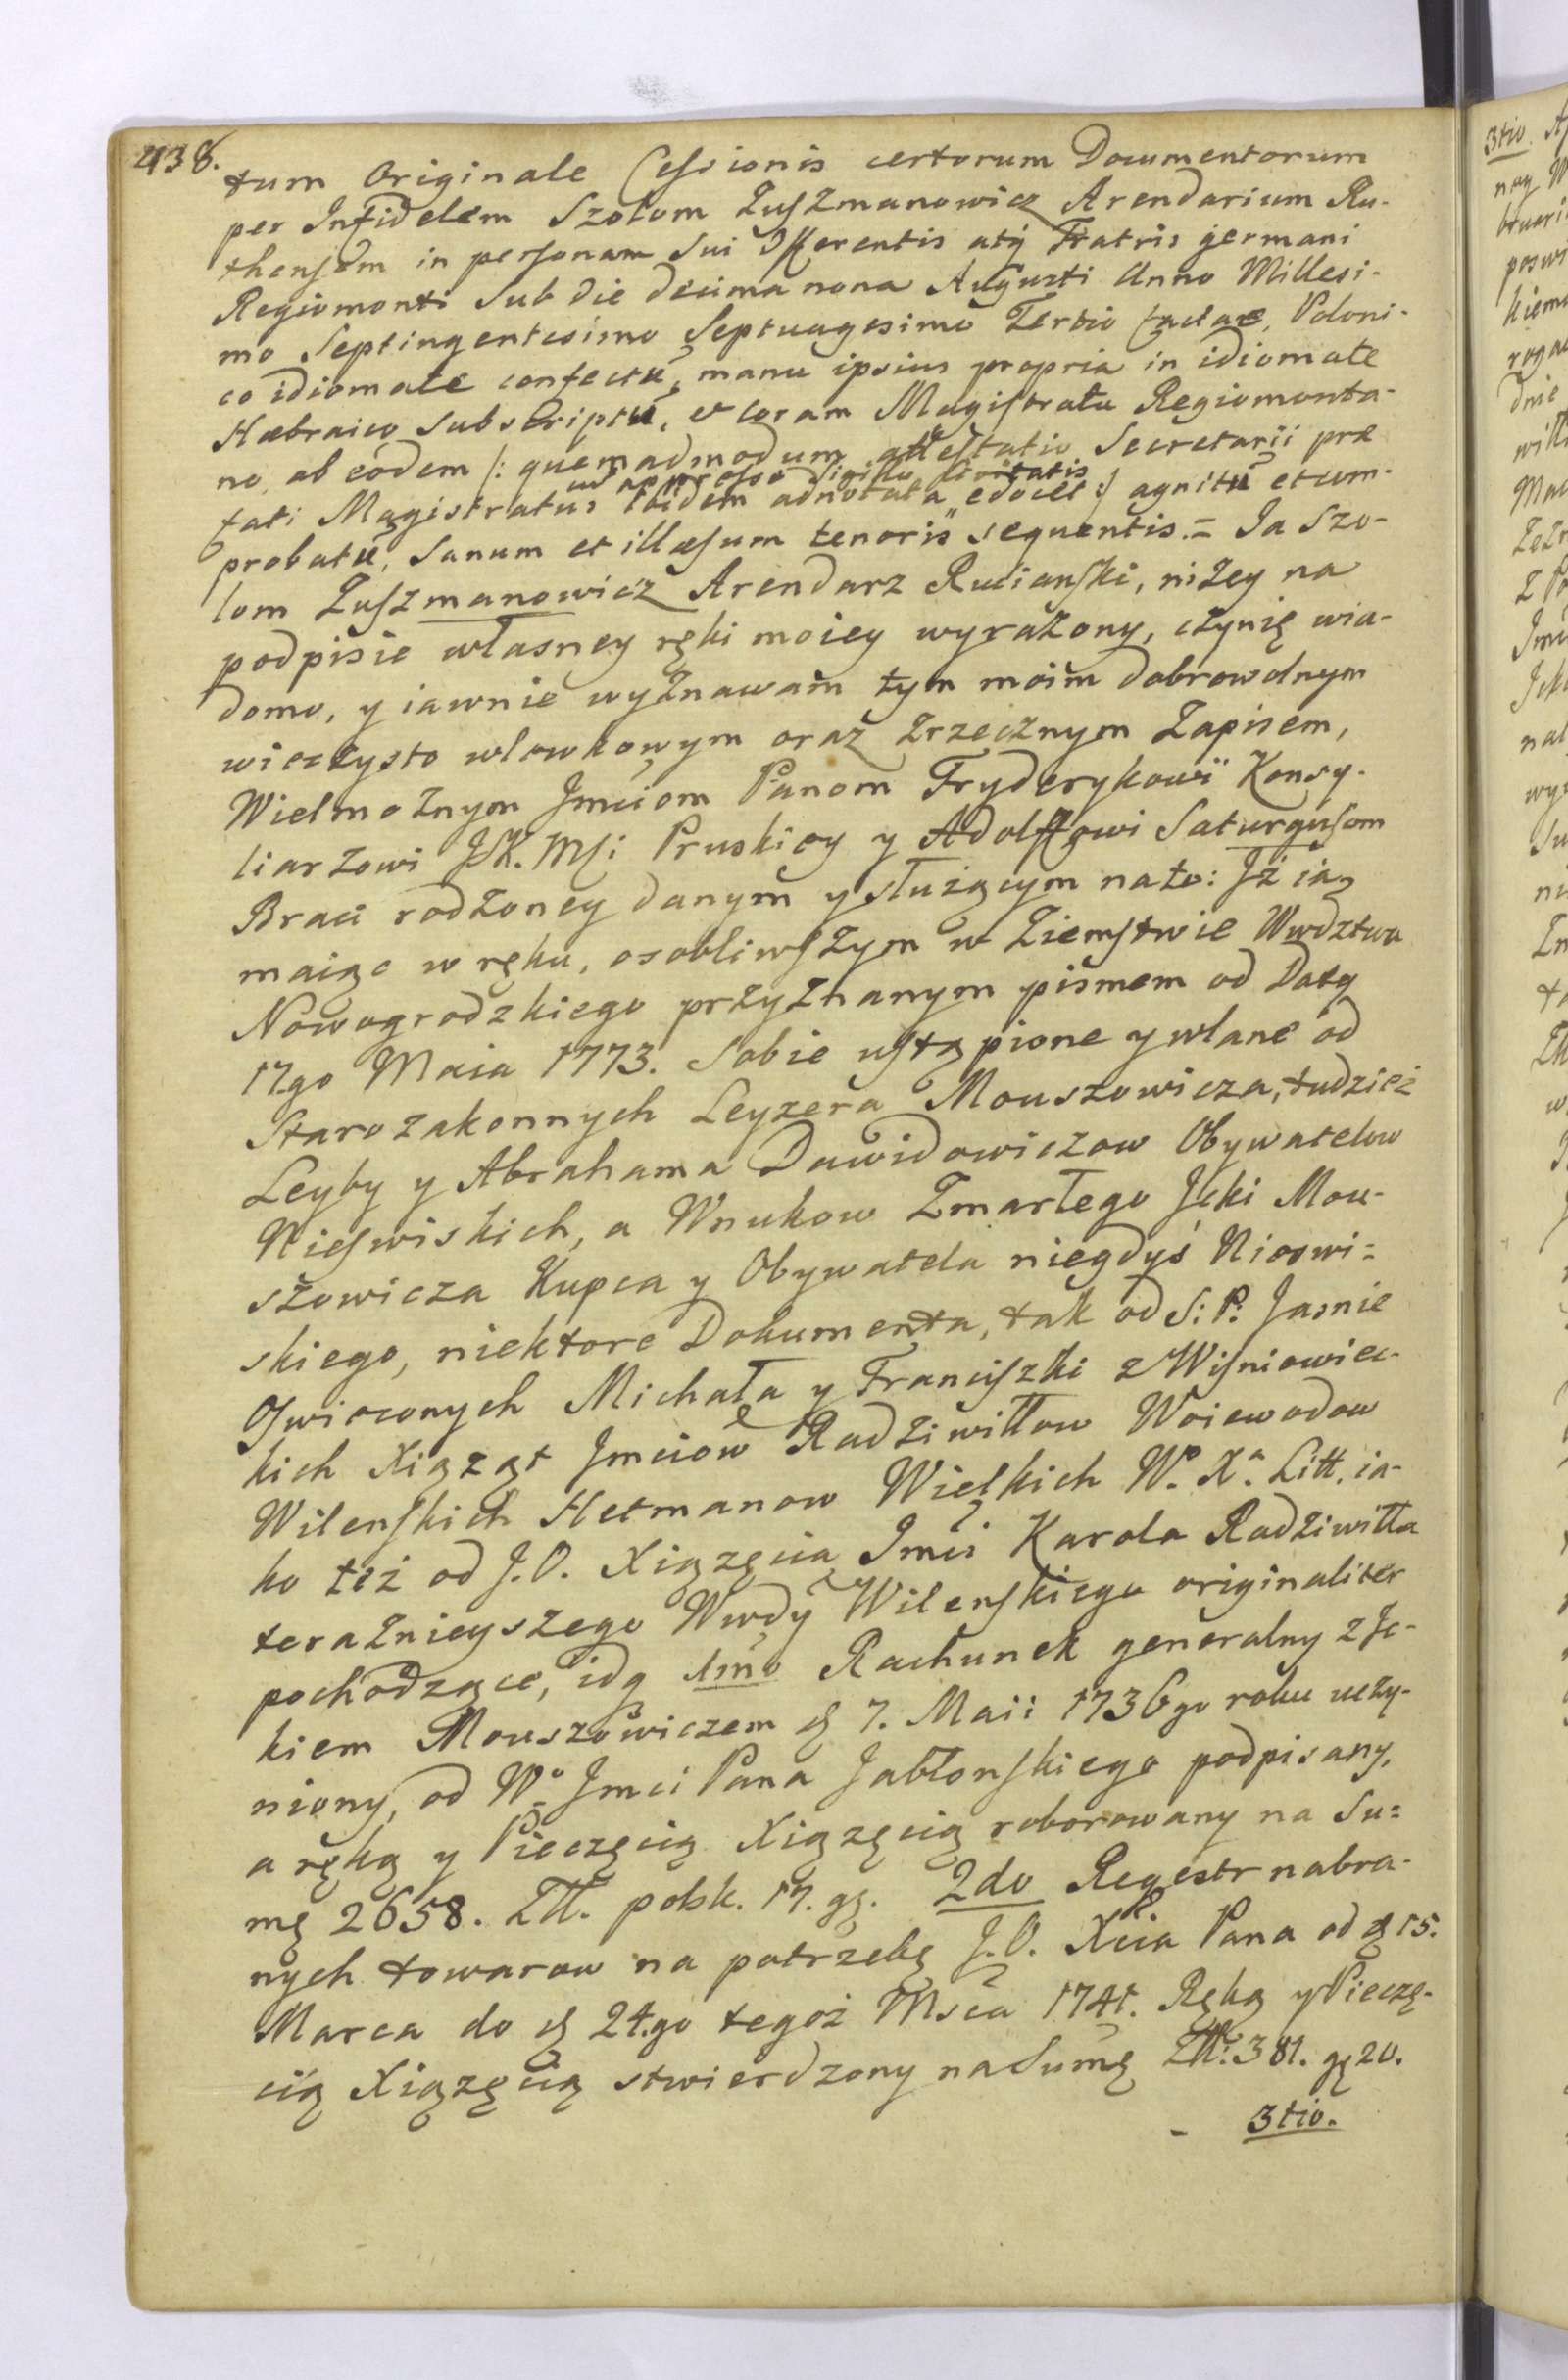 438.
tum Originale Cessionis certorum Documentorum
per Infidelem Szolom Zuszmanowicz Arendarium Ru-
thensem in personam Sui Offerentis atq̃ Fratris germani
Regiomonti Sub die decima nona Augusti Anno Millesi-
mo Septingentesimo Septuagesimo Tertio factae, Poloni-
co idiomate confectũ, manu ipsius propria in idiomate
Hæbraico Subscriptũ, et coram Magistratu Regiomonta-
no, ab eodem /: quemadmodum attestatio Secretarii præ
cũ appresso Sigillo Civitatis
fati Magistratus ibidem adnotata edocet :/ agnitũ et com-
probatũ, Sanum et illæsum tenoris sequentis. = Ja Szo-
lom Zuszmanowicz Arendarz Rucianski, niżey na
podpisie własney ręki moiey wyrażony, czynię wia-
domo, y iawnie wyznawam tym moim dobrowolnym
wieczysto wlewkowym oraz zrzecznym Zapisem,
Wielmożnym Jmciom Panom Fryderykowi Konsy-
liarzowi JK. Msi Pruskiey y Adolffowi Saturgusom
Braci rodzoney danym y służącym na to: Jż ia,
maiąc w ręku, osobliwszym w Ziemstwie Wwdztwa
Nowogrodzkiego przyznanym pismem od Daty
17.go Maia 1773. Sobie ustąpione y wlane od
Starozakonnych Leyzera Mouszowicza, tudzież
Leyby y Abrahama Dawidowiczow Obywatelow
Nieswiskich, a Wnukow Zmarłego Jcki Mou-
szowicza Kupca y Obywatela niegdyś Nieswi=
skiego, niektore Dokumenta, tak od S: P: Jasnie
Oswieconych Michała y Franciszki z Wisniowiec-
kich Xiążąt Jmciow Radziwiłłow Woiewodow
Wilenskich Hetmanow Wielkich W.º X.ª Litt. ia-
ko też od J.O. Xiążęcia Jmci Karola Radziwiłła
teraznieyszego Wwdy Wilenskiego originaliter
pochodzące, idą 1mo Rachunek generalny z Jc-
kiem Mouszowiczem d 7. Maii 1736go roku uczy-
niony, od W.º Jmci Pana Jabłonskiego podpisany,
a ręką y Pieczęcią Xiążęcią roborowany na Su=
mę 2658. Złł. polsk. 17. gę. 2do Regestr nabra-
nych towarow na potrzebę J.O. Xcia Pana od d 15.
Marca do d 24.go tegoż Msca 1741. Ręką y Pieczę-
cią Xiążęcią stwierdzony na Sumę Złł: 381. gę 20.
- 3tio.